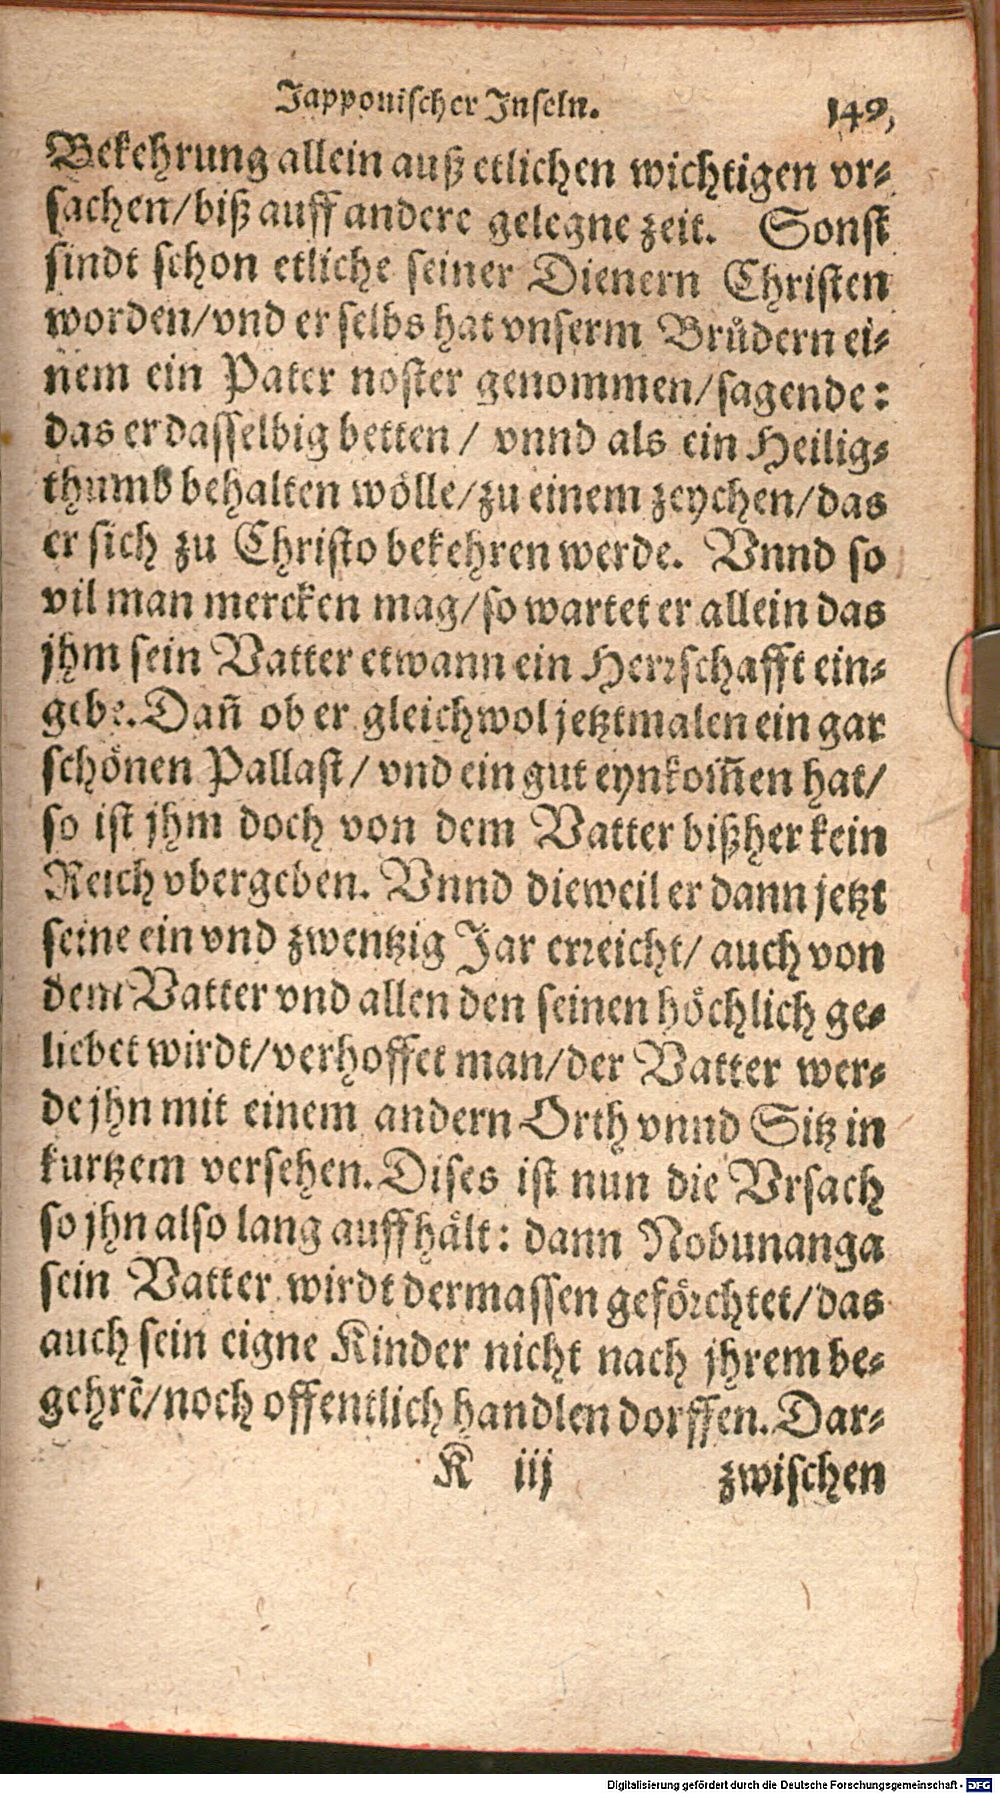 Japponischer Inseln. 149,
Bekehrung allein auß etlichen wichtigen vr-
sachen/biß auff andere gelegne zeit. Sonst
sindt schon etliche seiner Dienern Christen
worden/vnd er selbs hat vnserm Brůdern ei-
nem ein Pater noster genommen/sagende:
das er dasselbig betten/ vnnd als ein Heilig-
thumb behalten wölle/zu einem zeychen/das
er sich zu Christo bekehren werde. Vnnd so
vil man mercken mag/so wartet er allein das
jhm sein Vatter etwann ein Herrschafft ein-
gebe. Dañ ob er gleichwol jetztmalen ein gar
schönen Pallast/ vnd ein gut eynkom̃en hat/
so ist jhm doch von dem Vatter bißher kein
Reich vbergeben. Vnnd dieweil er dann jetzt
seine ein vnd zwentzig Jar erreicht/ auch von
dem Vatter vnd allen den seinen höchlich ge-
liebet wirdt/verhoffet man/der Vatter wer-
de jhn mit einem andern Orth vnnd Sitz in
kurtzem versehen. Dises ist nun die Vrsach
so jhn also lang auffhält: dann Nobunanga
sein Vatter wirdt dermassen geförchtet/das
auch sein eigne Kinder nicht nach jhrem be-
gehrẽ/noch offentlich handlen dorffen. Dar-
K iij zwischen
Digitalisierung gefördert durch die Deutsche Forschungsgemeinschaft - DFG